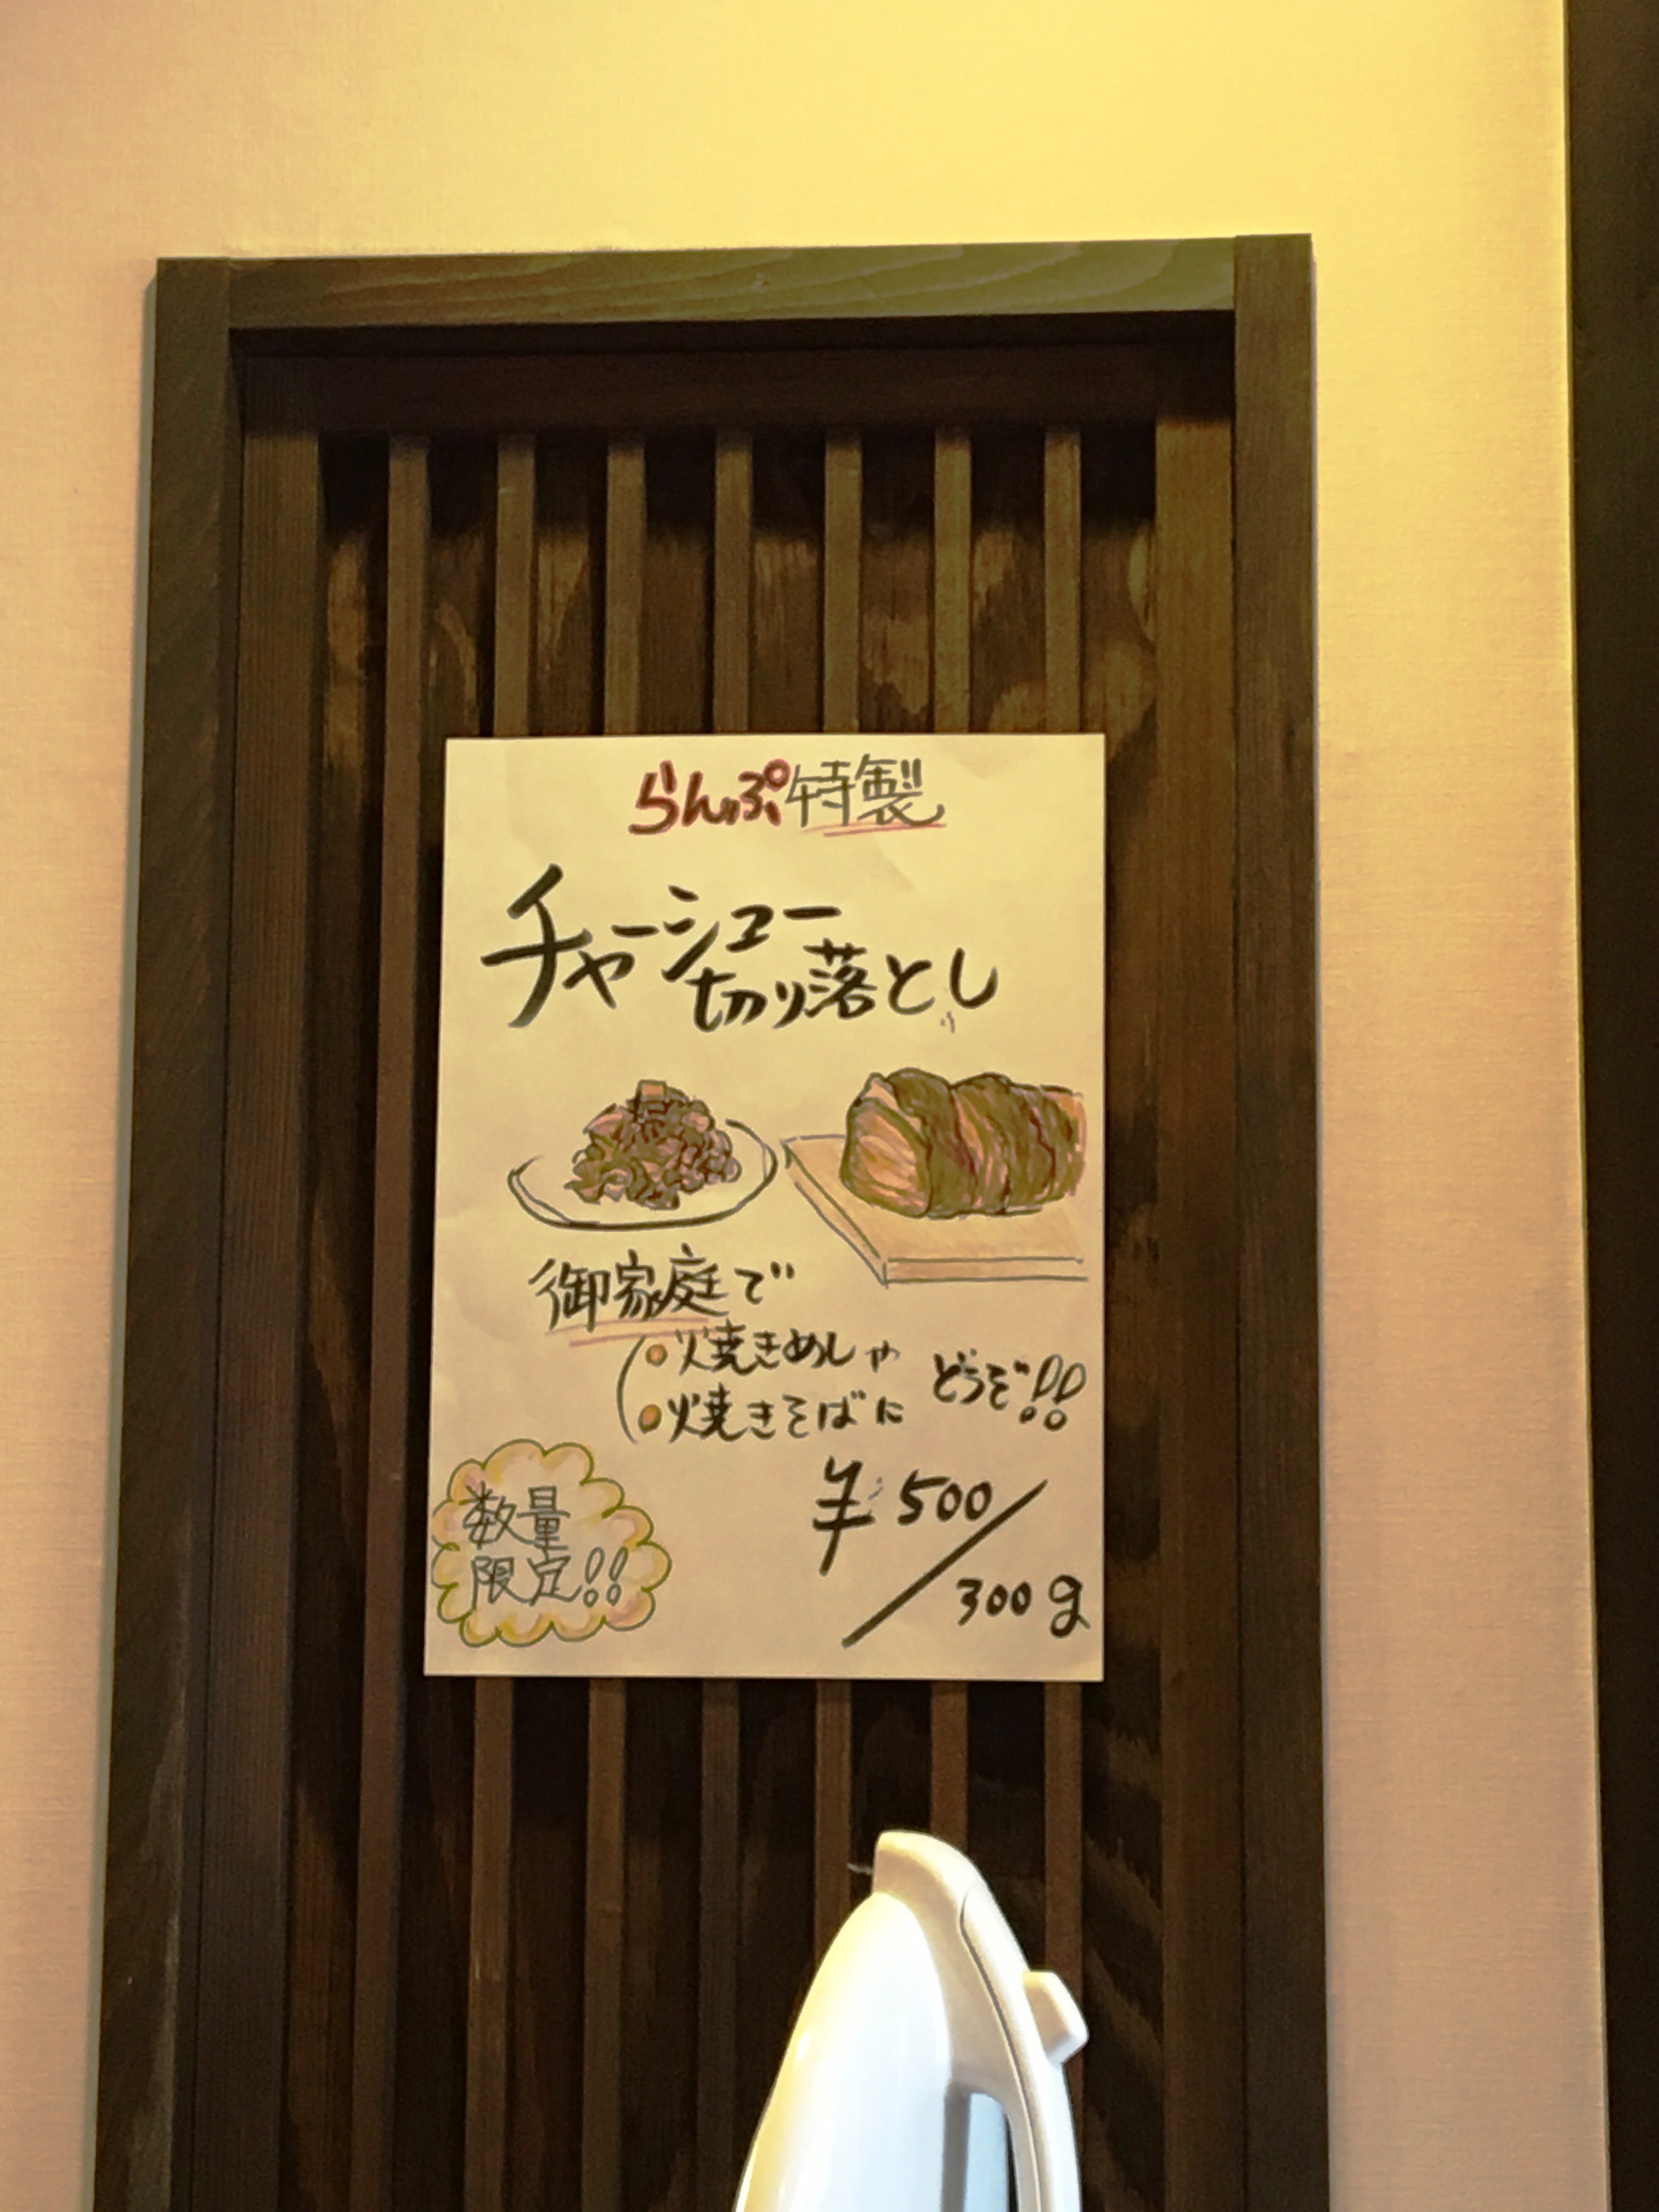 らんぷ特製
チャーシュー
切り落とし
御家庭で
・焼きめしや
・焼きそばに
どうぞ!!
数量
限定!!
¥500/
300g